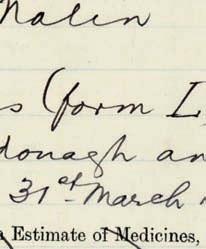 Malin
s (form L
donagh an
31st March
Estimate of Medicines,